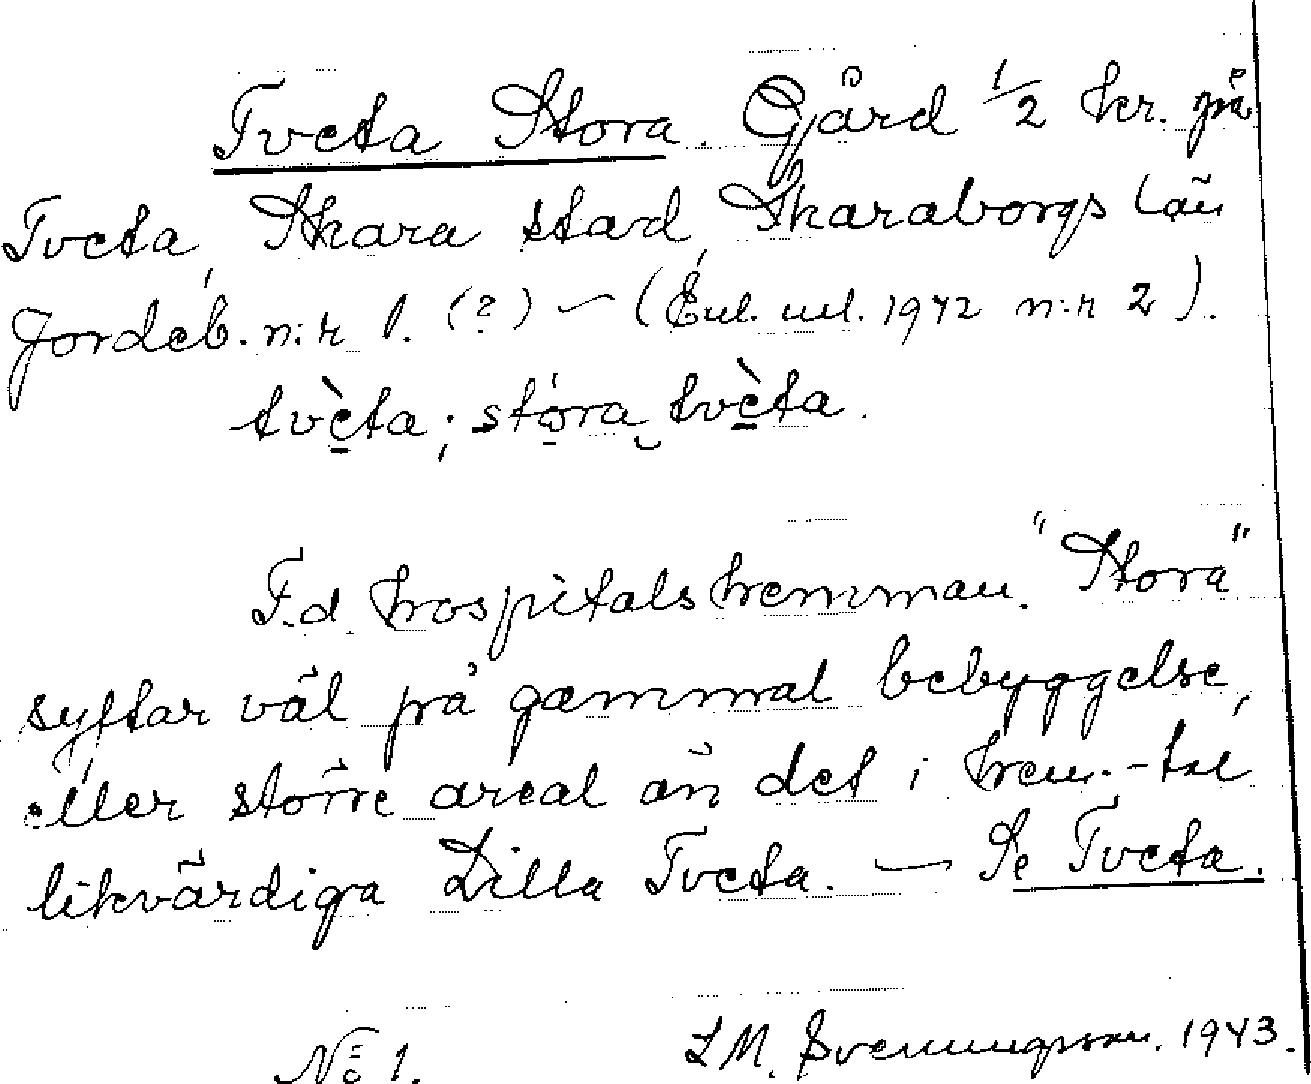 Tveta Stora. Gård 1/2 kr. på
Tveta, Skara stad, Skaraborgs län
Jordeb. n:r 1. (?) – (Enl. uul. 1942 n:r 2).
tvèta; stóra tvèta.
F.d. hospitalshemman. "Stora"
syftar väl på gammal bebyggelse,
eller större areal än det i hem.-tal
likvärdiga Lilla Tveta. — Se Tveta.
No 1. L M. Svenungsson. 1943.